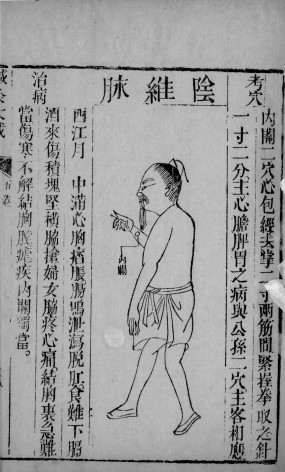 考穴
內關二穴心包經去掌二寸兩筋間緊握拳取之針
一寸二分主心膽脾胃之病與公孫二穴主客相應
陰維脉
內關
治病
西江月 中滿心胸痞脹腸鳴泄瀉脫肛食難下膈
酒來傷積塊堅橫脇搶婦女脇疼心痛結胸裏急難
當傷寒不解結胸膛瘧疾內關獨當。
鍼灸大成
五卷